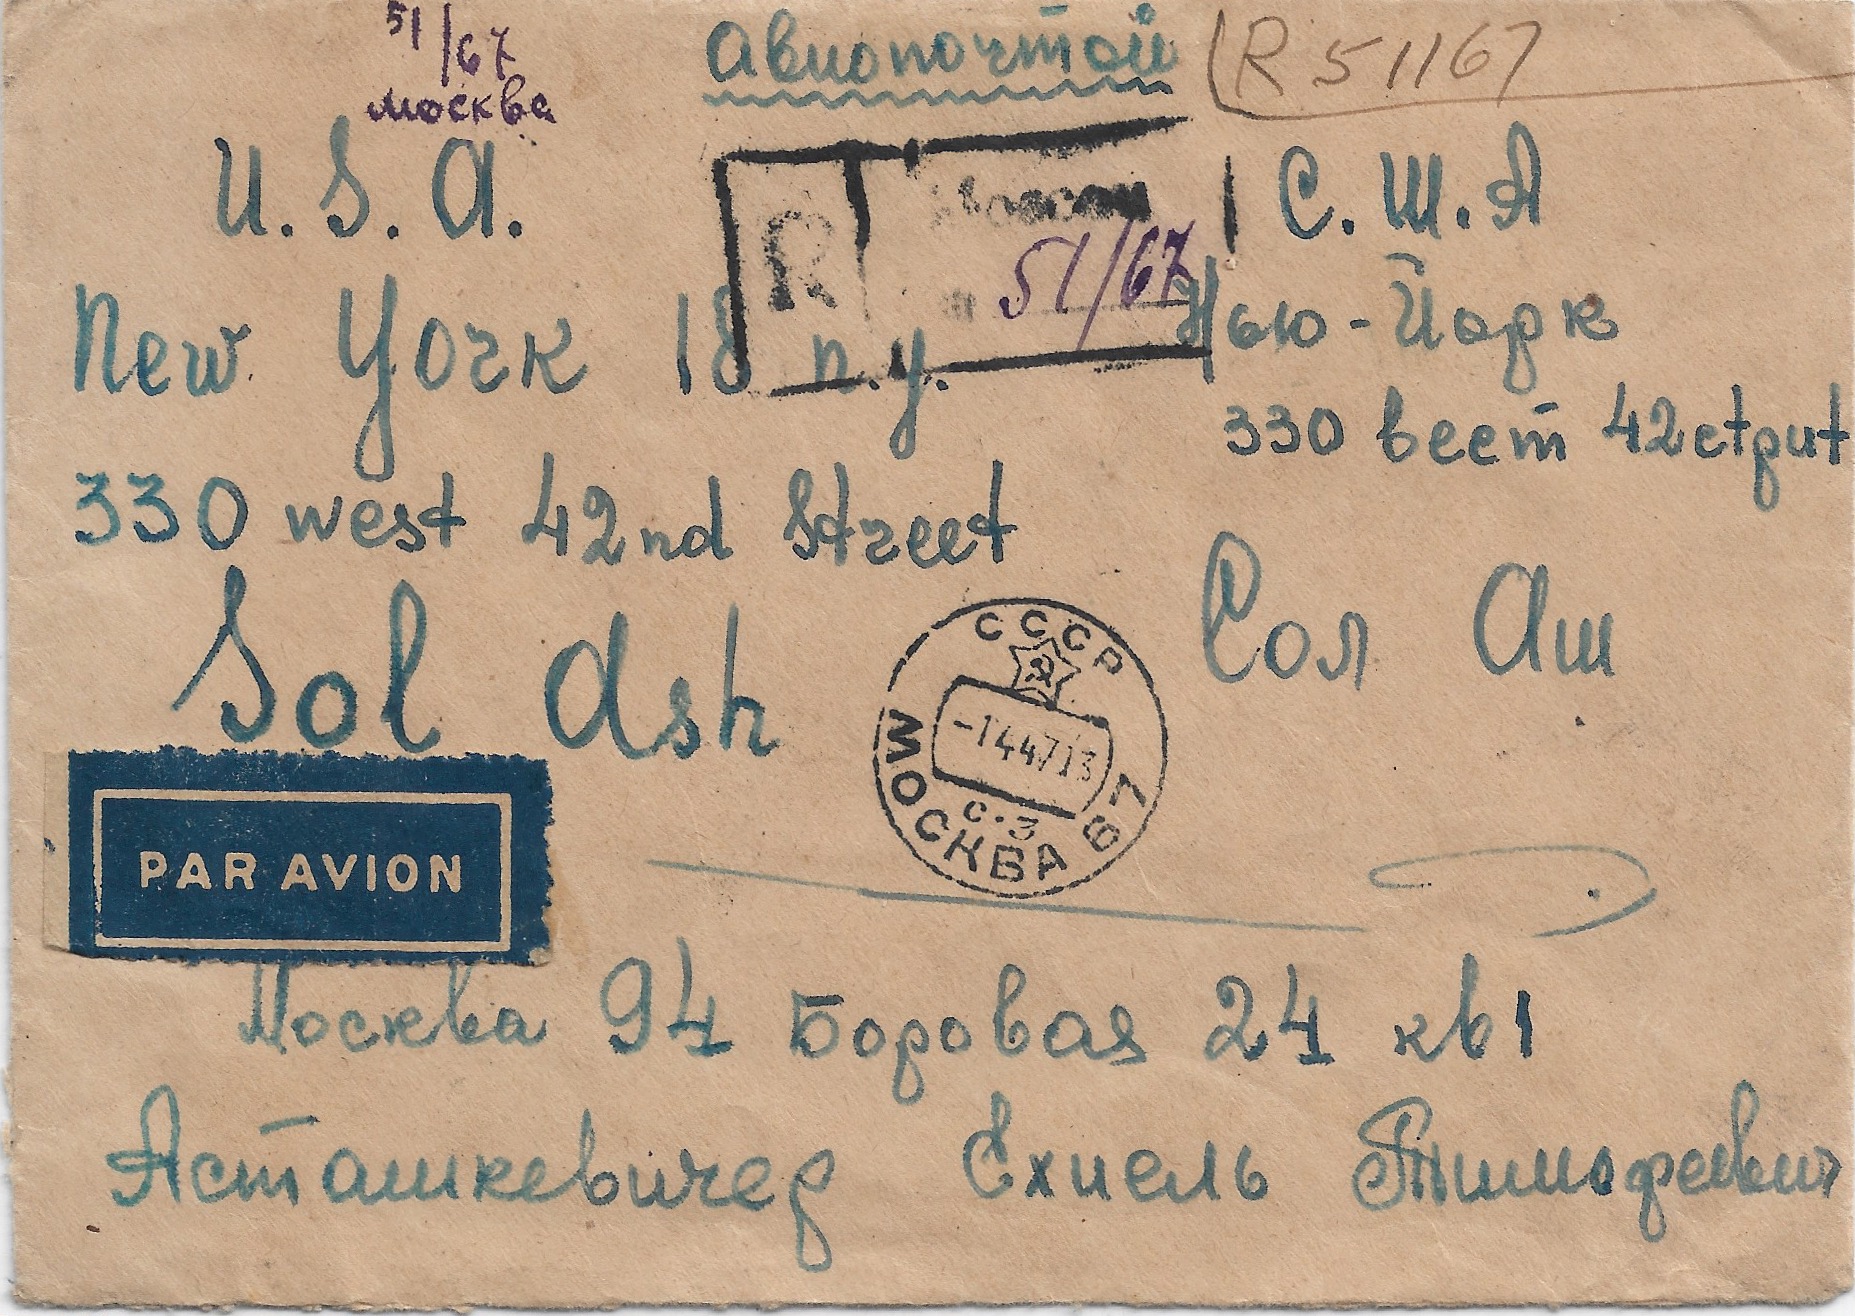 51/67
Москва
Авиопочтой
R 51167
U.S.A.
С.Ш.А
R
Moscou
51/67
New York 18 n.y.
Нью-Йорк
330 вест 42 стрит
330 west 42nd Street
Sol Ash
Сол Аш
СССР
-144713
с.з
МОСКВА 67
PAR AVION
Москва 94 Боровая 24 кв 1
Асташкевичер Ехиель Тимофеевич